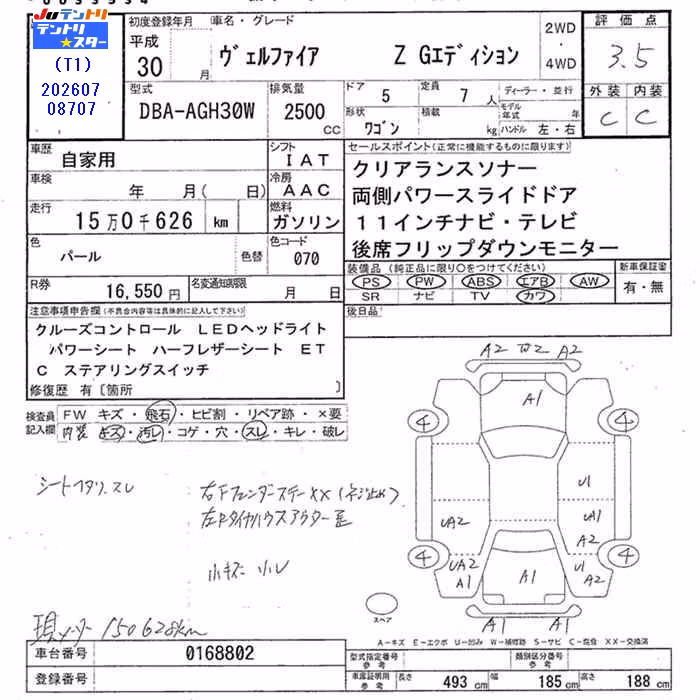 Juテントリ
テントリ
★スター
(T1)
202607
08707
初度登録年月
平成
30 月
車名・グレード
ヴェルファイア Z Gエディション
2WD
・
4WD
評価点
3.5
外装 内装
C C
型式
DBA-AGH30W
排気量
2500
CC
ドア 5
定員 7 人
形状 ワゴン
積載 kg
ディーラー・並行
モデル年式 年
ハンドル 左・右
車歴
自家用
シフト
IAT
車検
年 月( 日)
冷房
AAC
走行
15万0千626 km
燃料
ガソリン
色
パール
色替
色コード
070
R券
16,550円
名変通知期限
月 日
セールスポイント(正常に機能するものに限ります)
クリアランスソナー
両側パワースライドドア
11インチナビ・テレビ
後席フリップダウンモニター
装備品(純正品に限り○をつけてください)
PS PW ABS エアB AW
SR ナビ TV カワ
新車保証書
有・無
後日品
注意事項申告欄(不具合内容等は具体的に記入して下さい)
クルーズコントロール LEDヘッドライト
パワーシート ハーフレザーシート ET
C ステアリングスイッチ
修復歴 有〔箇所 〕
検査員
記入欄
FW キズ・飛石・ヒビ割・リペア跡・×要
内装 キズ・汚レ・コゲ・穴・スレ・キレ・破レ
シートヘタリ、スレ
右Fフェンダーステー××(ネジ止め)
小キズ 小レ
現メーター 150628km
A2 W2 A2
A1
4 4
U1
UA2
UA1
A2
UA2
A1
U1
A2
A1
4 4
A1
A1 A1
スペア
A-キズ E-エクボ U-凹み W-補修跡 S-サビ C-腐食 XX-交換済
車台番号
0168802
登録番号
型式指定番号
参考
類別区分番号
参考
車庫証明用
参考
長さ 493 cm
幅 185 cm
高さ 188 cm